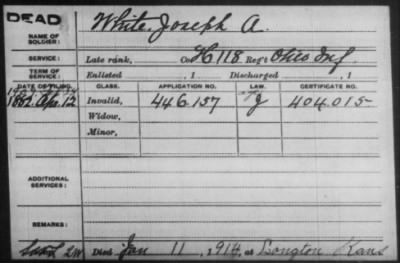 DEAD
NAME OF SOLDIER:
White, Joseph A.
SERVICE:
Late rank, Co. H 118 Reg't Ohio Inf
TERM OF SERVICE:
Enlisted , 1 Discharged , 1
DATE OF FILING. CLASS. APPLICATION NO. LAW. CERTIFICATE NO.
1882. Ap. 12 Invalid, 446.157 J 404.015
Widow,
Minor,
ADDITIONAL SERVICES:
REMARKS:
Died Jan 11, 1914, at Longton Kans